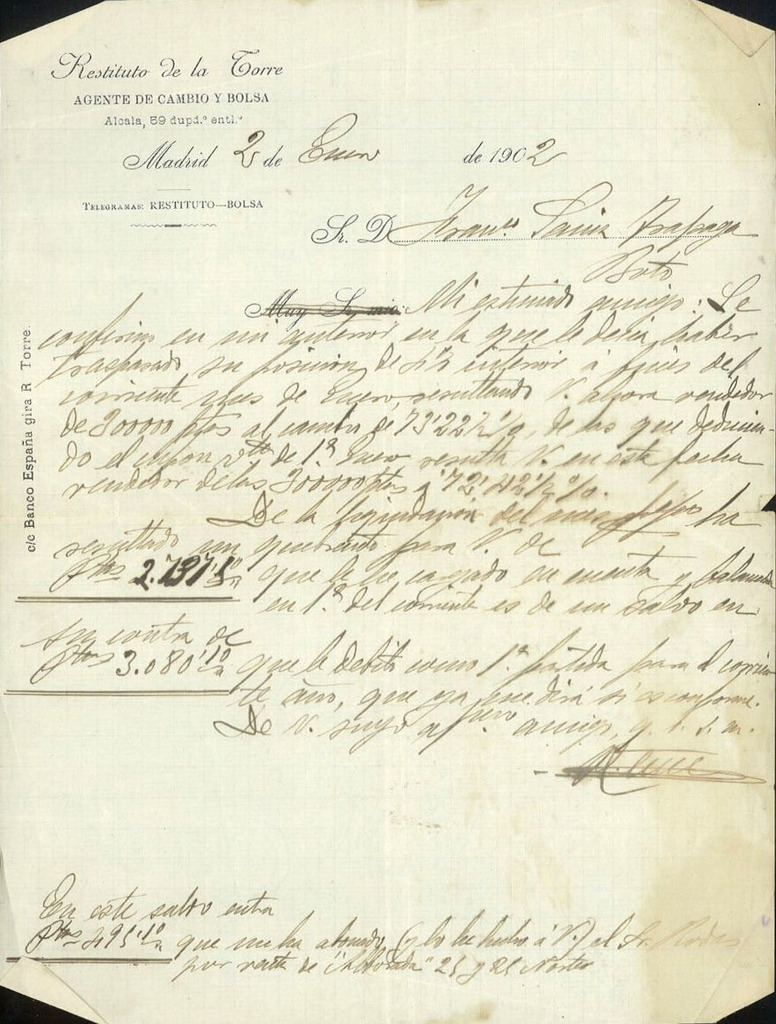 Restituto de la Torre
AGENTE DE CAMBIO Y BOLSA
Alcala, 59 dupd.º entl.º
Madrid 2 de Enero de 1902
TELEGRAMAS: RESTITUTO—BOLSA
Sr. D. Franco. Sainz Trapaga
Soto
Muy Sr. mio: Mi estimado amigo: Le
confirmo en mi anterior en la que le decia haber
traspasado su posicion de 4% interior á fines del
corriente mes de Enero, resultando V. ahora vendedor
de 300000 ptas al cambio de 73'22½%, de los que deducien-
do el cupon vto. de 1º Enero resulta V. en esta fecha
vendedor de las 300000 ptas á 72'42½%.
De la liquidacion del mes ha
resultado un quebranto para V. de
Ptas 2.737'50 que le he cargado en cuenta y
en 1º del corriente es de un saldo en
su contra de
Ptas 3.080'10 que le debito como 1ª partida para el corrien-
te año, que ya me dirá si es conforme.
De V. suyo afmo. amigo, q. b. s. m.
R. Torre
c/c Banco España gira R Torre.
En este saldo entra
Ptas 495'10 que me ha abonado (y lo he hecho á V.) el Sr.
por venta de "Alborada" 25 y 25 Nortes